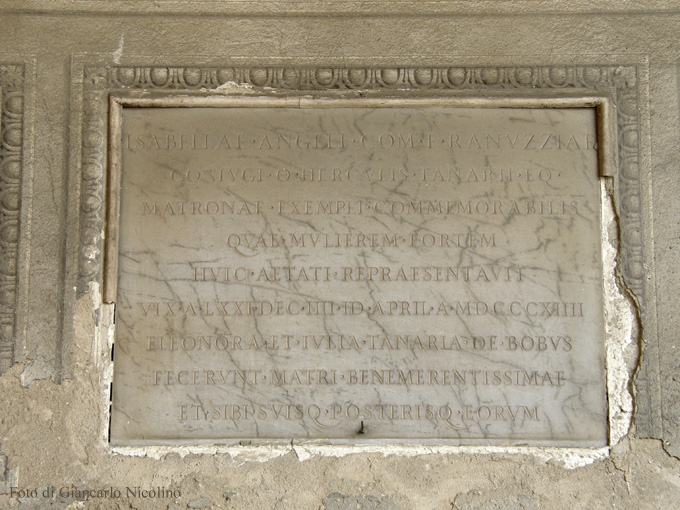 ISABELLAE · ANGELI · COM · F · RANVZZIAE
CONIVGI · Q · HERCVLIS · TANARII · EQ ·
MATRONAE · EXEMPLI · COMMEMORABILIS
QVAE · MVLIEREM · FORTEM
HVIC · AETATI · REPRAESENTAVIT
VIX · A · LXXI · DEC · IIII · ID · APRIL · A · MDCCCXIIII
ELEONORA · ET · IVLIA · TANARIA · DE · BOBVS
FECERVNT · MATRI · BENEMERENTISSIMAE
ET · SIBI · SVISQ · POSTERISQ · EORVM
Foto di Giancarlo Nicolino